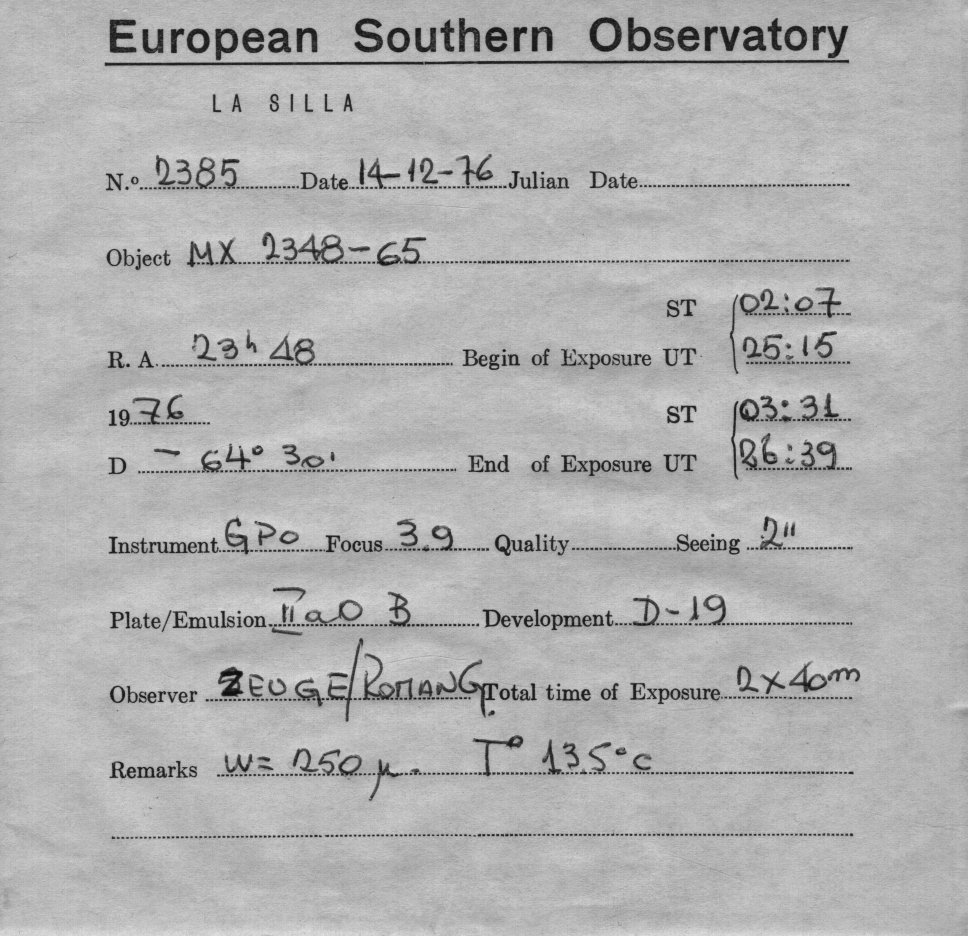 European Southern Observatory
LA SILLA
N.º 2385 Date 14-12-76 Julian Date
Object MX 2348-65
ST 02:07
R. A. 23h 48 Begin of Exposure UT 25:15
1976 ST 03:31
D - 64° 30' End of Exposure UT 26:39
Instrument GPO Focus 3.9 Quality Seeing 2"
Plate/Emulsion IIaO B Development D-19
Observer ZEUGE/ROMANG. Total time of Exposure 2x40m
Remarks W= 250 µ. T° 13.5°c